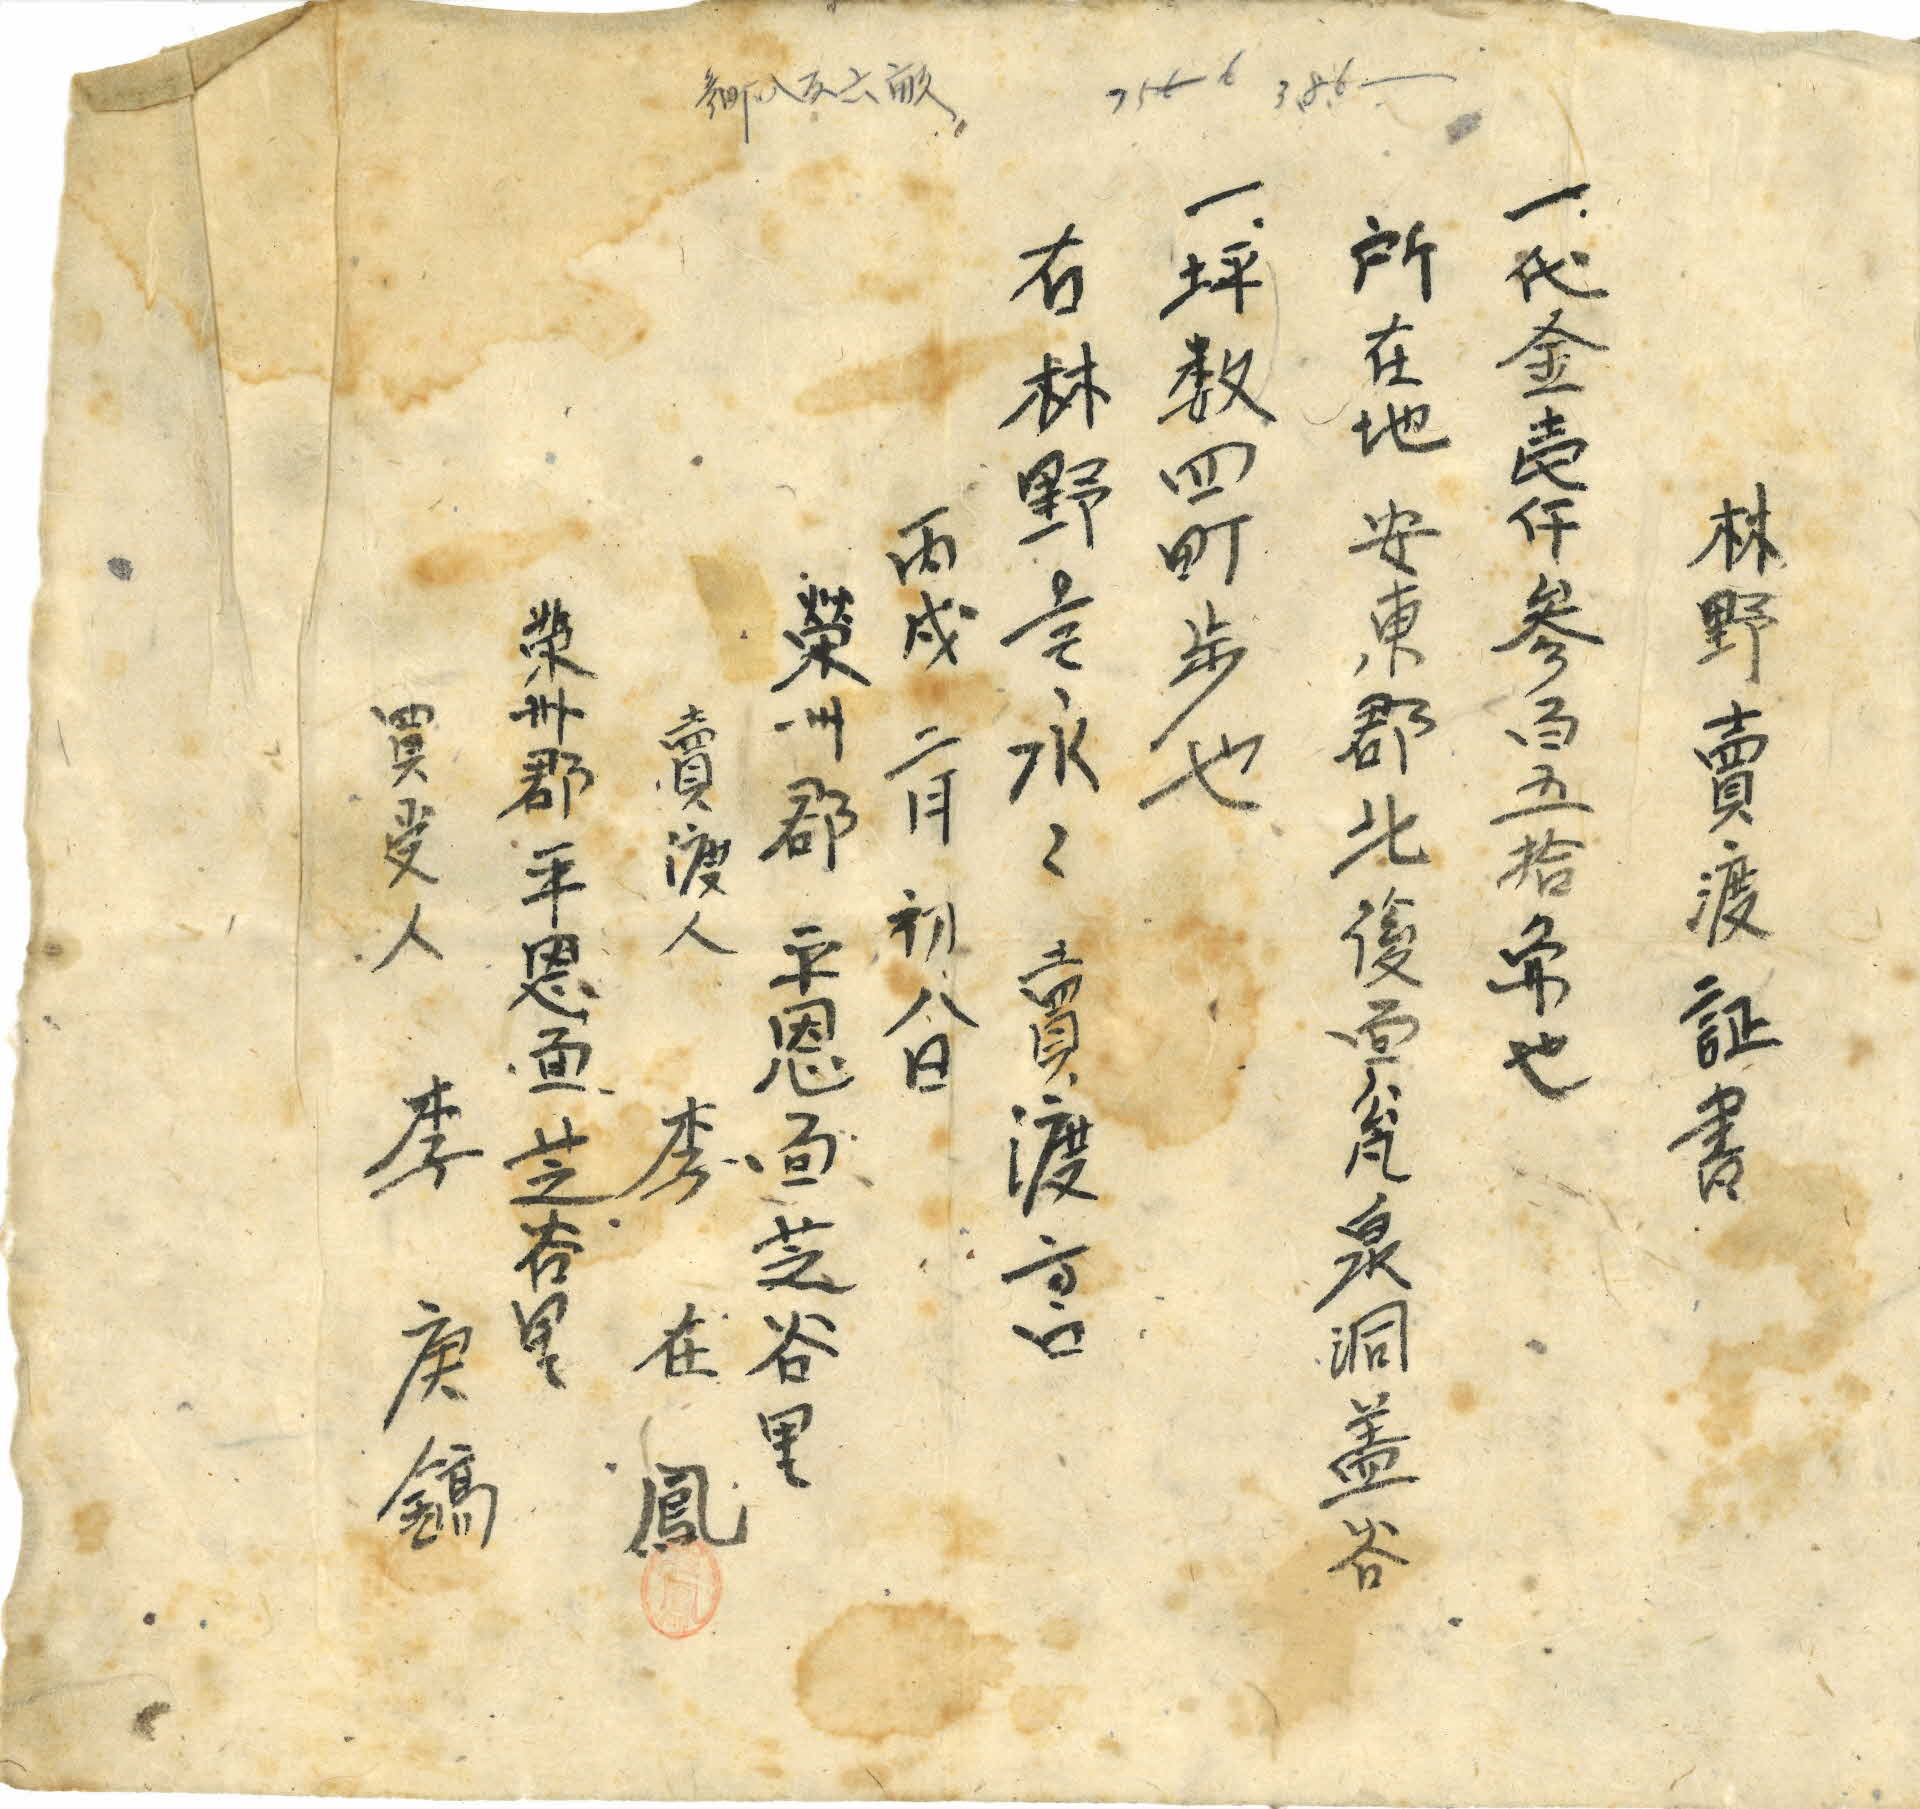 林野賣渡証書
一. 代金壹仟參百五拾兩也
所在地 安東郡北後面瓮泉洞蓋谷
一. 坪数四町步也
右林野을 永々賣渡홈
丙戌 二月 初八日
榮州郡 平恩面芝谷里
賣渡人 李在鳳
榮州郡 平恩面芝谷里
買受人 李庚鎬
參町八反六畝
756 6 386